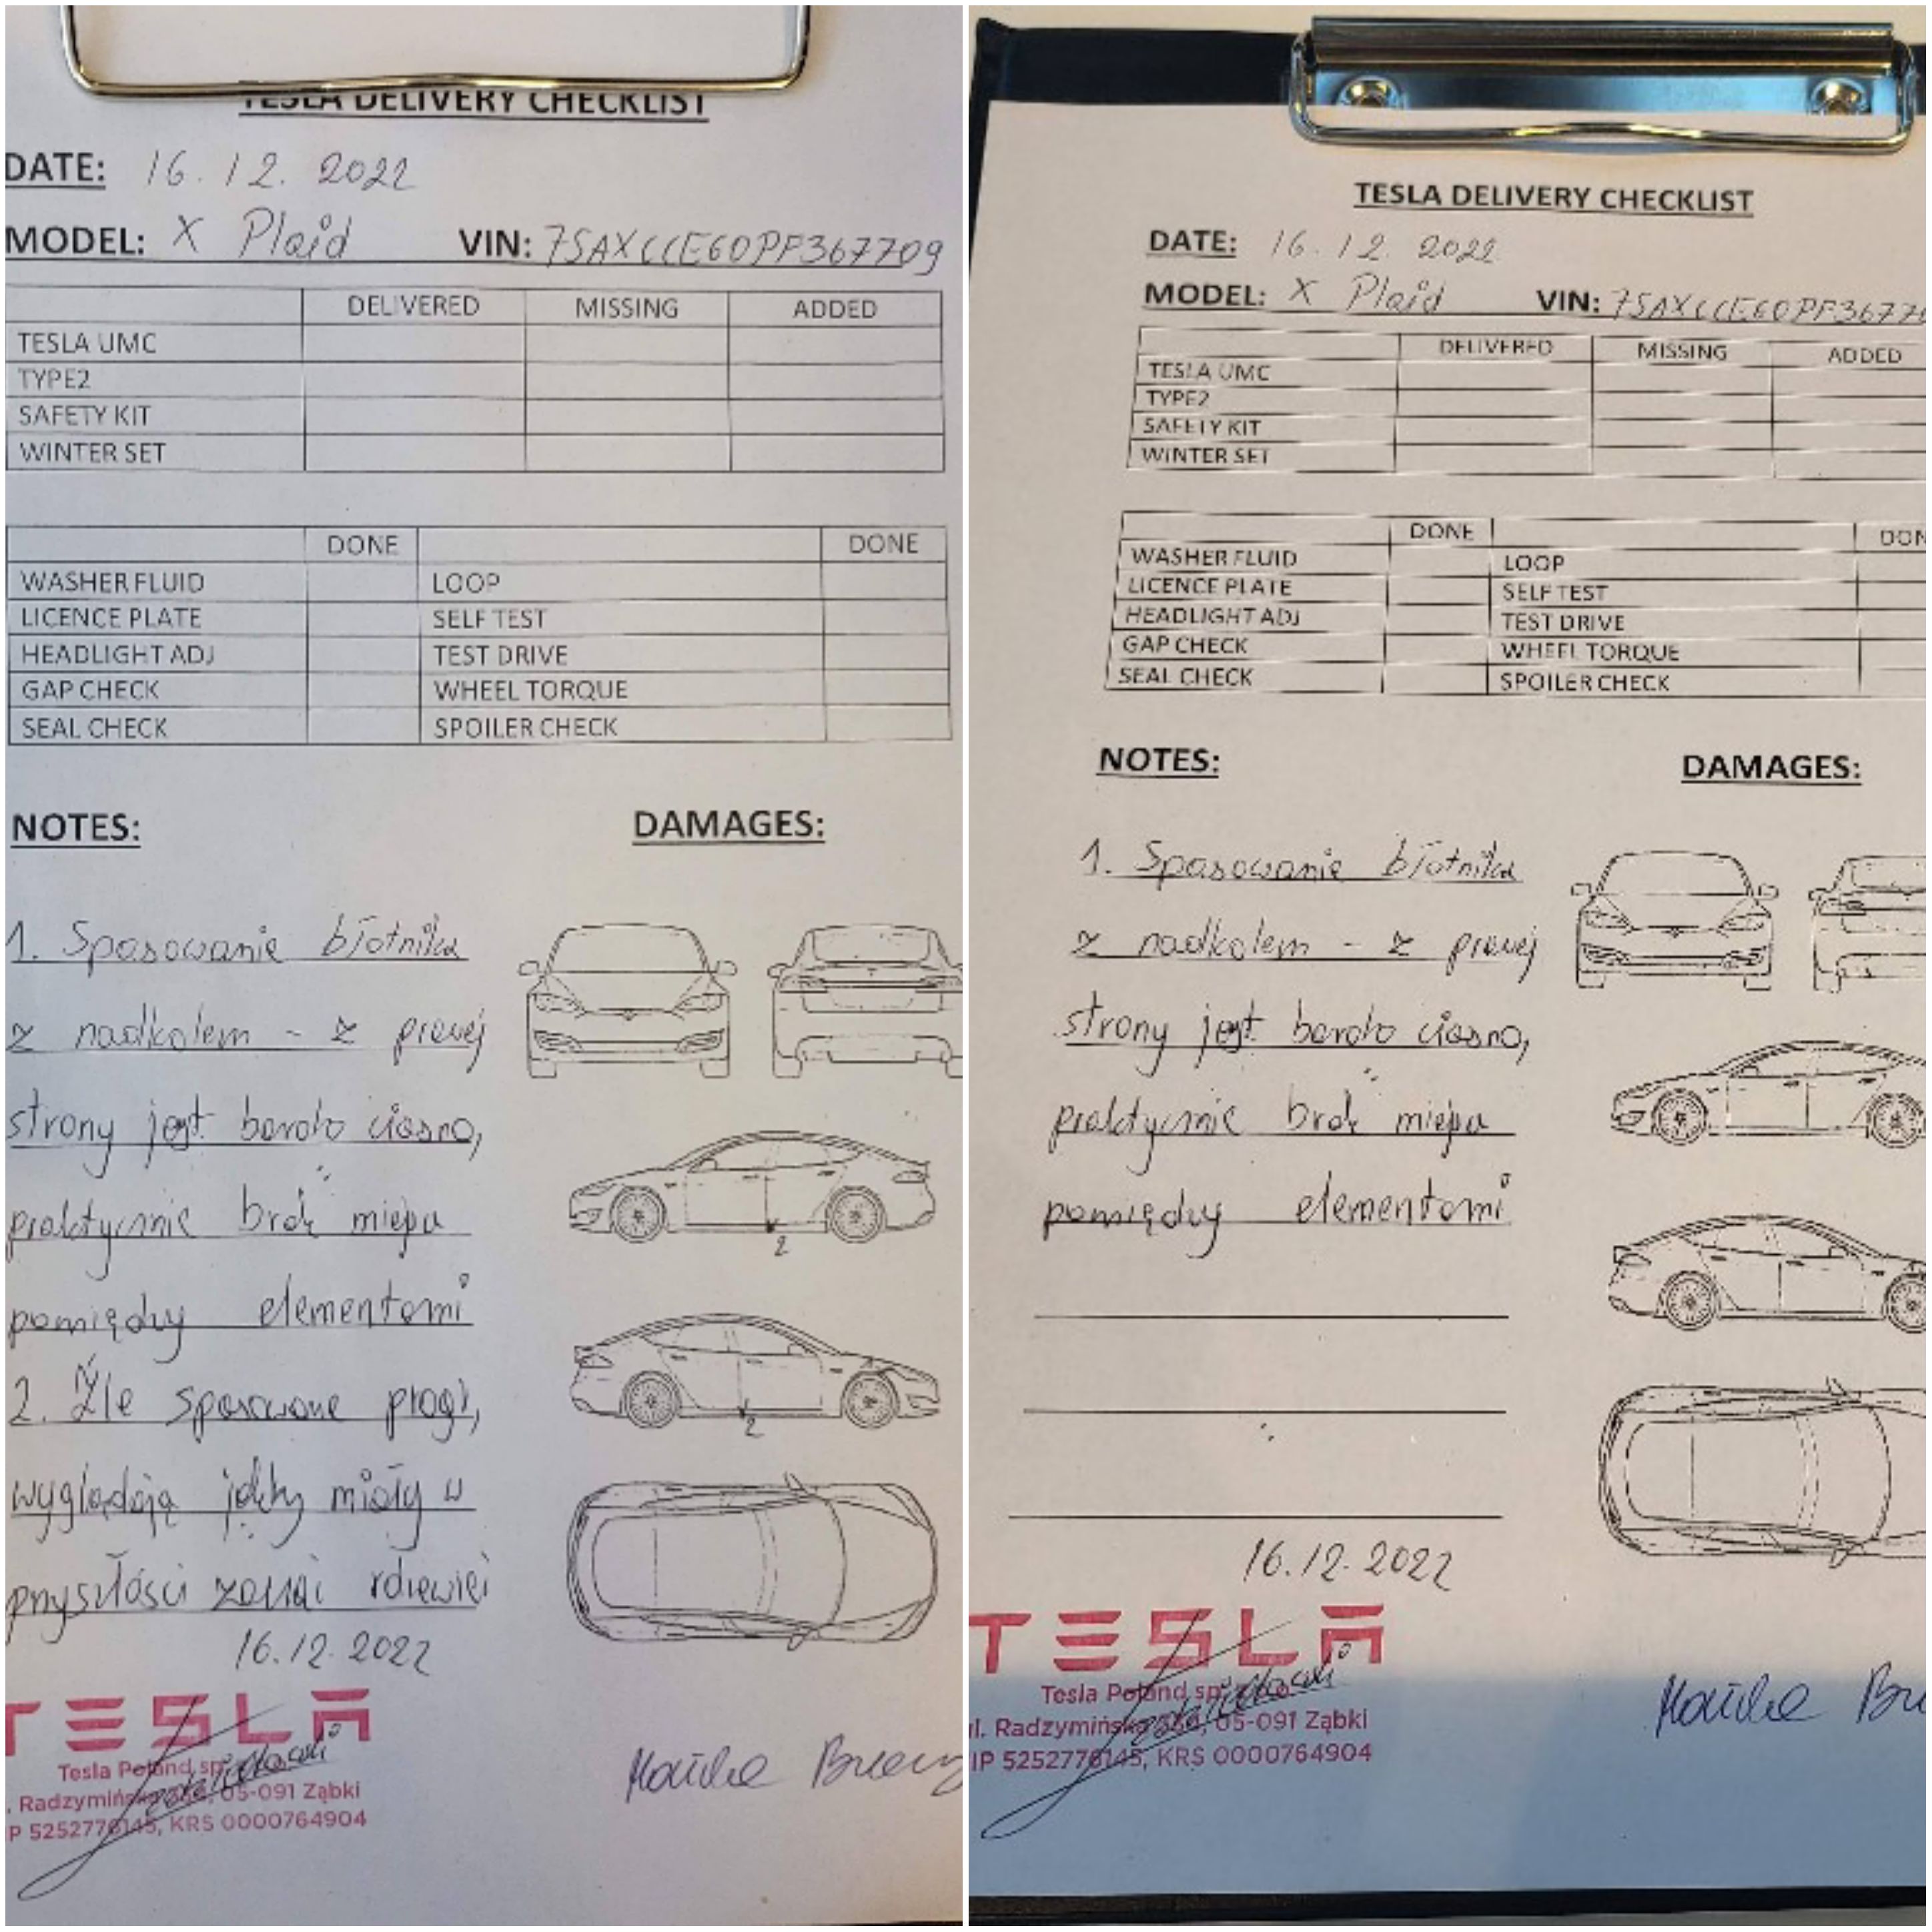 TESLA DELIVERY CHECKLIST
DATE: 16.12.2022
MODEL: X Plaid VIN: 7SAXCCE60PF367709
DELIVERED MISSING ADDED
TESLA UMC
TYPE2
SAFETY KIT
WINTER SET
DONE DONE
WASHER FLUID LOOP
LICENCE PLATE SELF TEST
HEADLIGHT ADJ TEST DRIVE
GAP CHECK WHEEL TORQUE
SEAL CHECK SPOILER CHECK
NOTES: DAMAGES:
1. Spasowanie błotnika
z nadkolem - z prawej
strony jest bardzo ciasno,
praktycznie brak miejsca
pomiędzy elementami
2. Źle spasowane progi,
wyglądają jakby miały w
przyszłości zacząć rdzewieć
2
2
16.12.2022
TESLA
Tesla Poland sp.
. Radzymińska 05-091 Ząbki
P 5252776145, KRS 0000764904
TESLA DELIVERY CHECKLIST
DATE: 16.12.2022
MODEL: X Plaid VIN: 7SAXCCE60PF3677
DELIVERED MISSING ADDED
TESLA UMC
TYPE2
SAFETY KIT
WINTER SET
DONE DON
WASHER FLUID LOOP
LICENCE PLATE SELF TEST
HEADLIGHT ADJ TEST DRIVE
GAP CHECK WHEEL TORQUE
SEAL CHECK SPOILER CHECK
NOTES: DAMAGES:
1. Spasowanie błotnika
z nadkolem - z prawej
strony jest bardzo ciasno,
praktycznie brak miejsca
pomiędzy elementami
16.12.2022
TESLA
Tesla Poland sp. z o.o.
ul. Radzymińska 05-091 Ząbki
IP 5252776145, KRS 0000764904